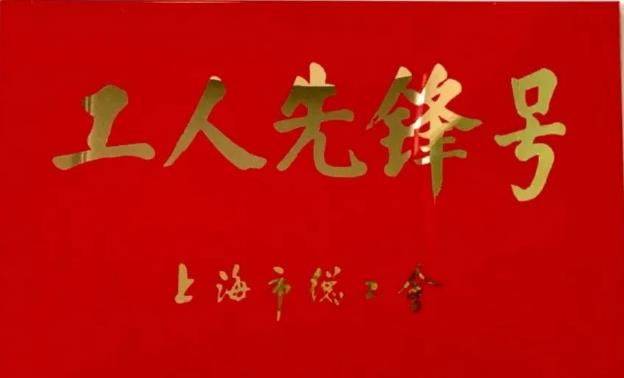 工人先锋号
上海市總工會